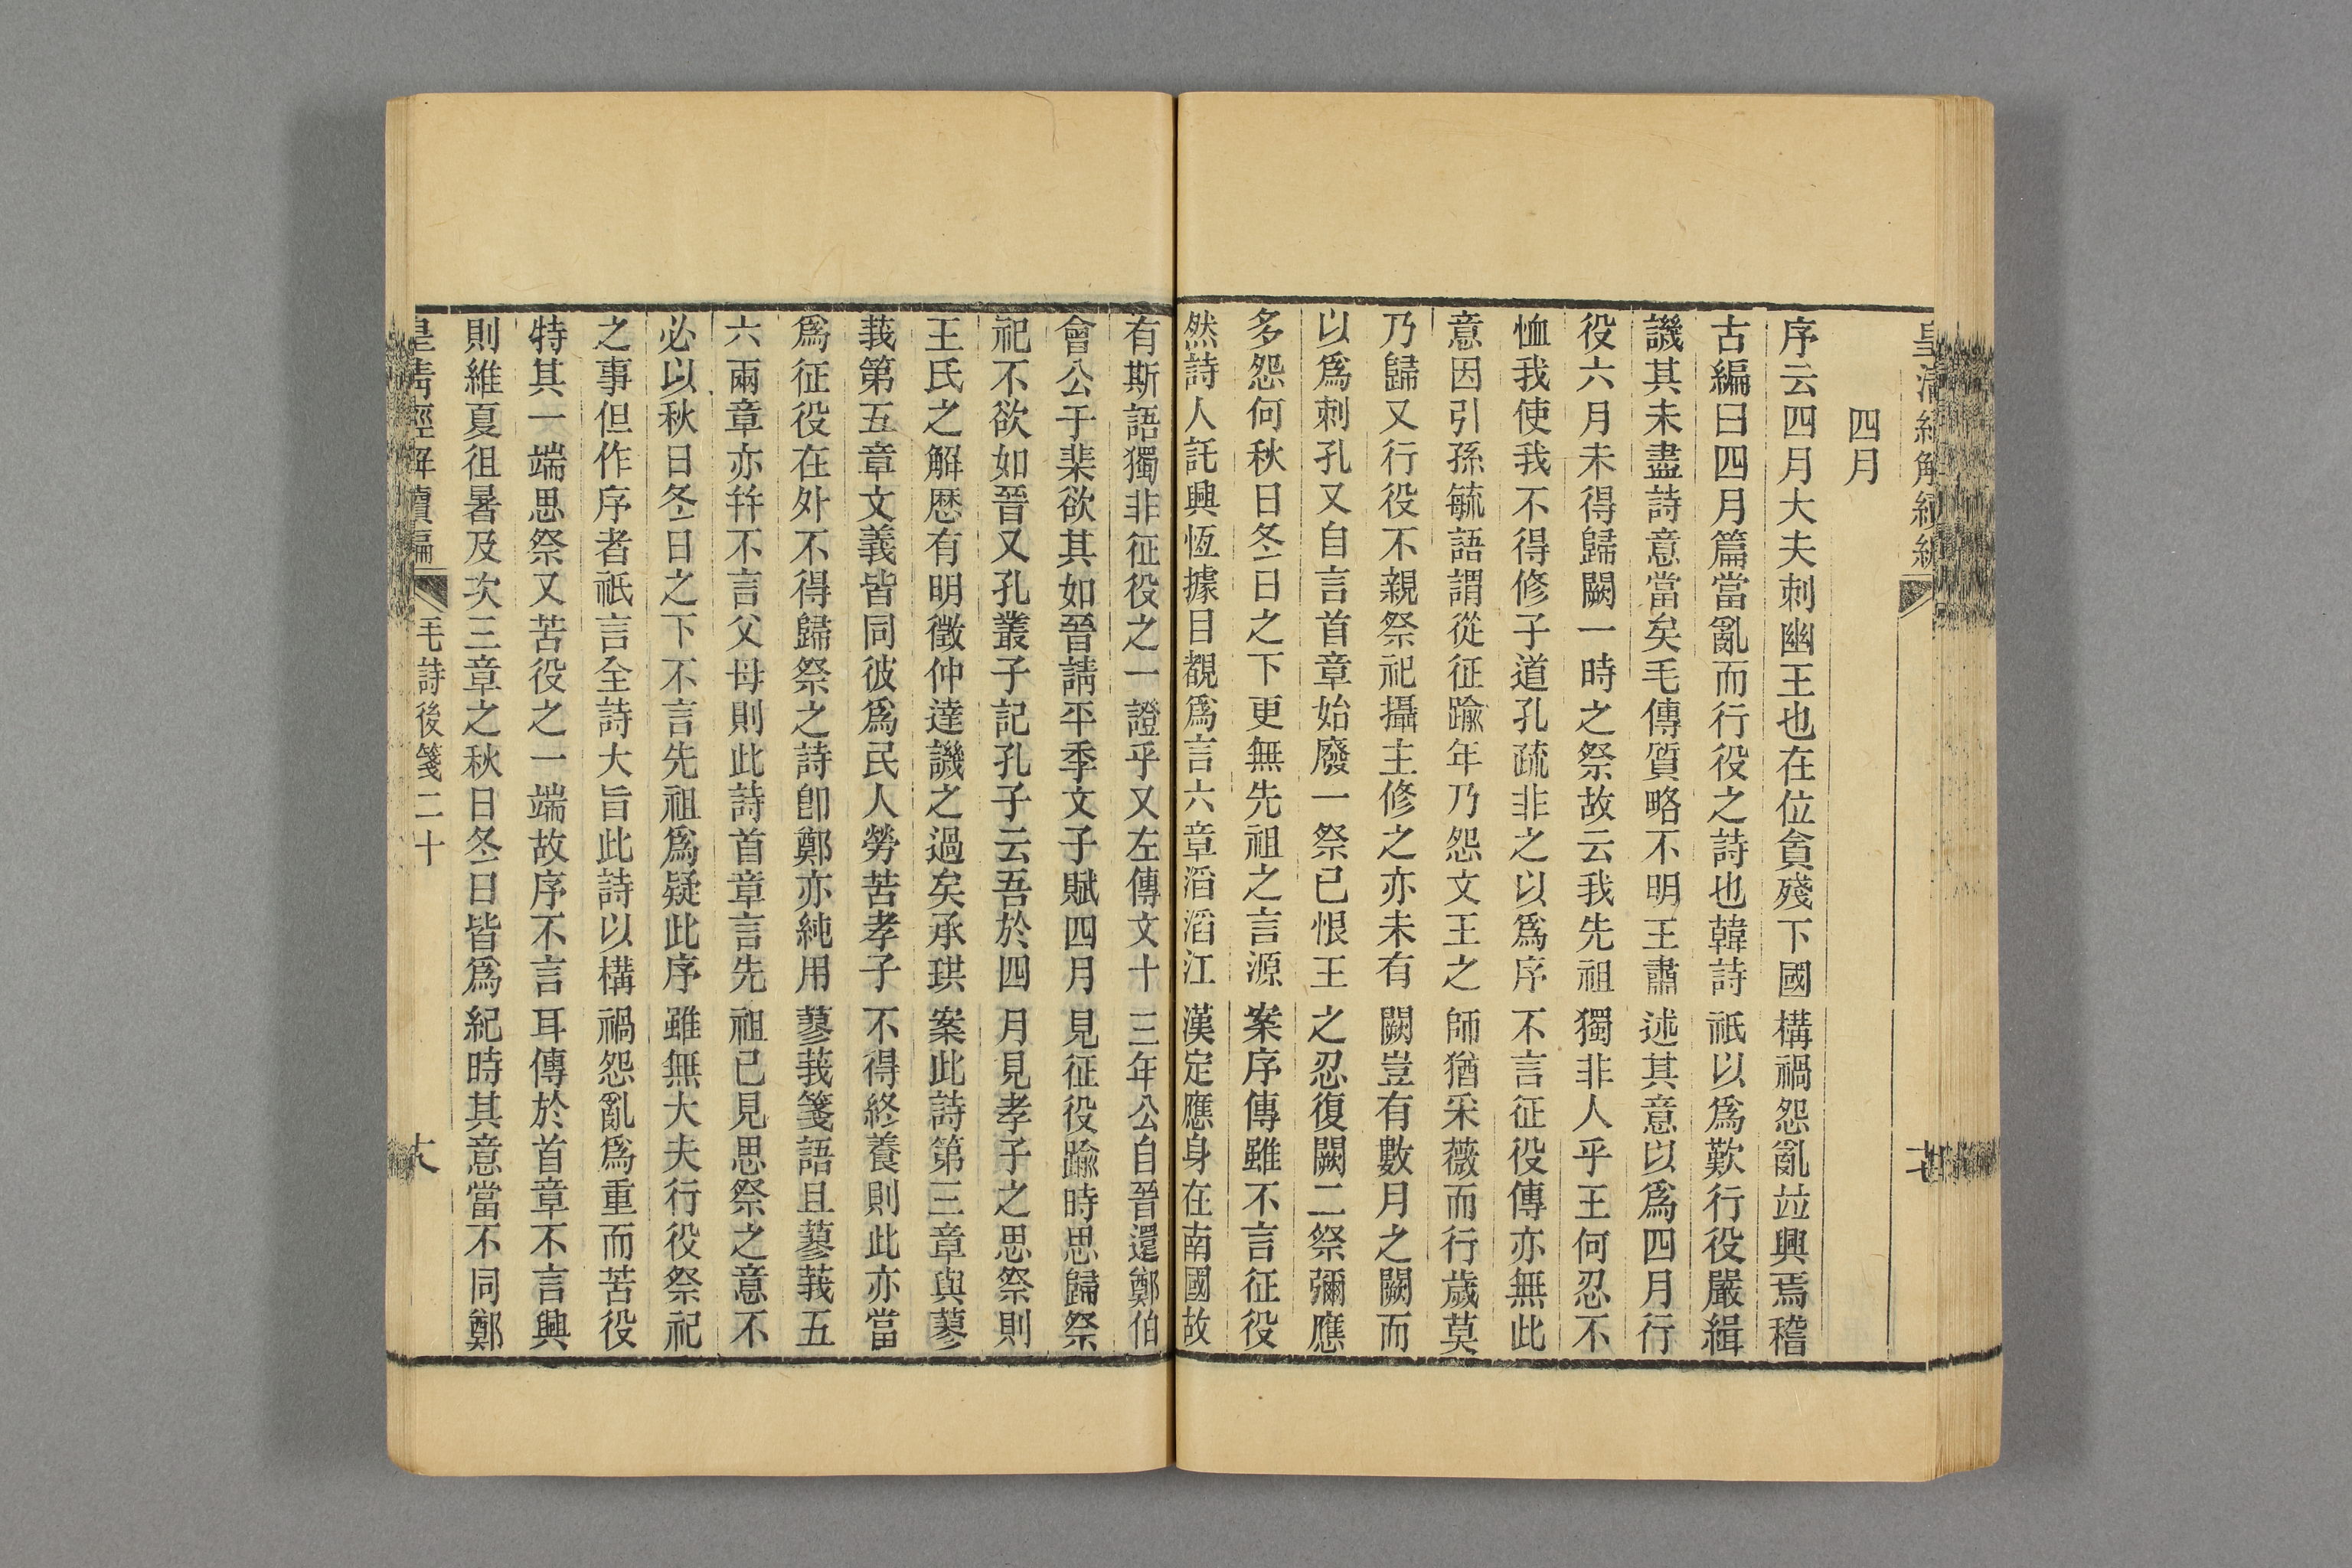 皇清經解續編
四月
序云四月大夫刺幽王也在位貪殘下國構禍怨亂竝興焉稽
古編曰四月篇當亂而行役之詩也韓詩祇以爲歎行役嚴緝
譏其未盡詩意當矣毛傳質略不明王肅述其意以爲四月行
役六月未得歸闕一時之祭故云我先祖獨非人乎王何忍不
恤我使我不得修子道孔疏非之以爲序不言征役傳亦無此
意因引孫毓語謂從征踰年乃怨文王之師猶采薇而行歲莫
乃歸又行役不親祭祀攝主修之亦未有闕豈有數月之闕而
以爲刺孔又自言首章始廢一祭已恨王之忍復闕二祭彌應
多怨何秋日冬日之下更無先祖之言源案序傳雖不言征役
然詩人託興恆據目覩爲言六章滔滔江漢定應身在南國故
有斯語獨非征役之一證乎又左傳文十三年公自晉還鄭伯
會公于棐欲其如晉請平季文子賦四月見征役踰時思歸祭
祀不欲如晉又孔叢子記孔子云吾於四月見孝子之思祭則
王氏之解歷有明徵仲達譏之過矣承珙案此詩第三章與蓼
莪第五章文義皆同彼爲民人勞苦孝子不得終養則此亦當
爲征役在外不得歸祭之詩卽鄭亦純用蓼莪箋語且蓼莪五
六兩章亦幷不言父母則此詩首章言先祖已見思祭之意不
必以秋日冬日之下不言先祖爲疑此序雖無大夫行役祭祀
之事但作序者祇言全詩大旨此詩以構禍怨亂爲重而苦役
特其一端思祭又苦役之一端故序不言耳傳於首章不言興
則維夏徂暑及次三章之秋日冬日皆爲紀時其意當不同鄭
皇清經解續編 毛詩後箋二十